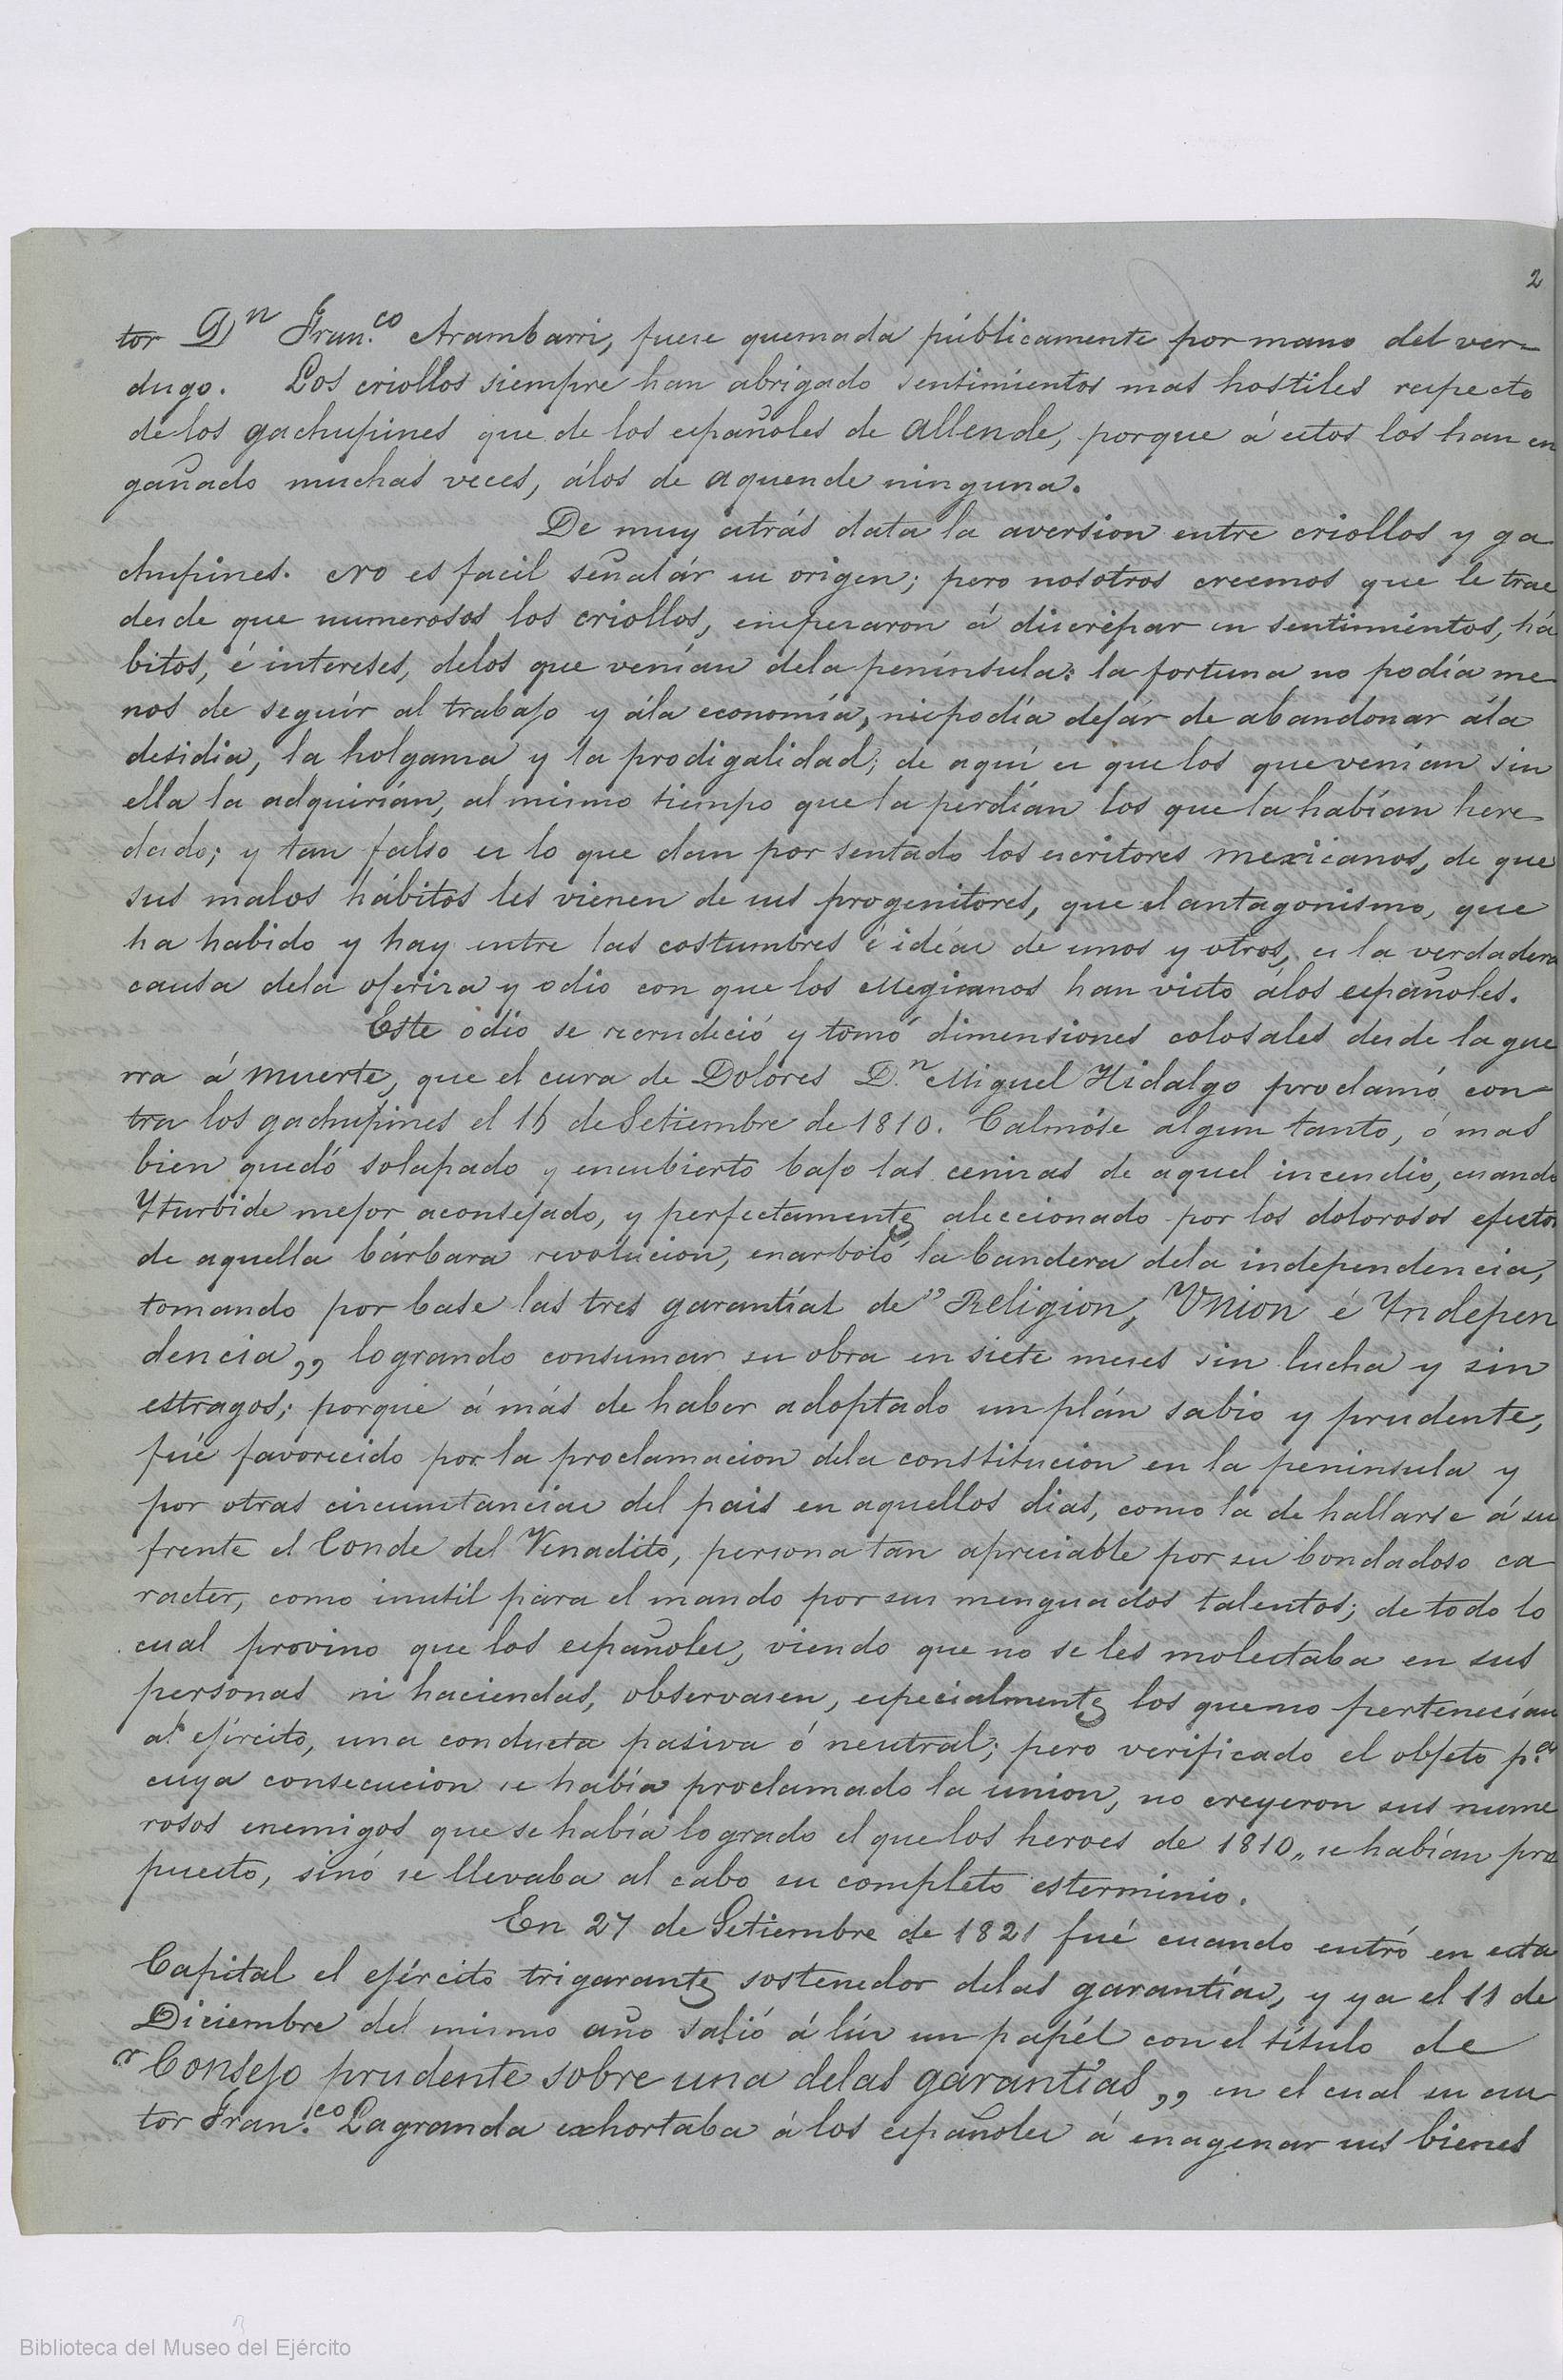 2
tor Dn Fran.co Arambarri, fuese quemada públicamente por mano del ver-
dugo. Los criollos siempre han abrigado sentimientos mas hostiles respecto
de los gachupines que de los españoles de allende, porque á estos los han en
gañado muchas veces, álos de aquende ninguna.
De muy atrás data la aversion entre criollos y ga
chupines. No es facil señalár su origen; pero nosotros creemos que le trae
desde que numerosos los criollos, empezaron á discrépar en sentimientos, há
bitos, é intereses, delos que venían dela península: la fortuna no podía me
nos de seguír al trabajo y ála economía, ni podía dejár de abandonar ála
desidia, la holganza y la prodigalidad; de aquí es que los que venían sin
ella la adquirían, al mismo tiempo que la perdían los que la habían here
dado; y tan falso es lo que dan por sentado los escritores mexicanos, de que
sus malos hábitos les vienen de sus progenitores, que el antagonismo, que
ha habido y hay entre las costumbres é idéas de unos y otros, es la verdadera
causa dela ojeriza y odio con que los Megicanos han visto álos españoles.
Este odio se recrudeció y tomó dimensiones colosales desde la gue
rra á muerte, que el cura de Dolores D.n Miguel Hidalgo proclamó con-
tra los gachupines el 16 de Setiembre de 1810. Calmóse algun tanto, ó mas
bien quedó solapado y encubierto bajo las cenizas de aquel incendio, cuando
Yturbide mejor aconsejado, y perfectamente aleccionado por los dolorosos efectos
de aquella bárbara revolucion, enarboló la bandera dela independencia,
tomando por base las tres garantías de "Religion, Union é Yndepen
dencia,, logrando consumar su obra en siete meses sin lucha y sin
estragos; porque á más de haber adoptado un plán sabio y prudente,
fué favorecido por la proclamacion dela constitucion en la peninsula y
por otras circunstancias del pais en aquellos dias, como la de hallarse á su
frente el Conde del Venadito, persona tan apreciable por su bondadoso ca
racter, como inutil para el mando por sus menguados talentos; de todo lo
cual provino que los españoles, viendo que no se les molestaba en sus
personas ni haciendas, observasen, especialmente los que no pertenecían
al ejército, una conducta pasiva ó neutral; pero verificado el objeto p.a
cuya consecucion se había proclamado la union, no creyeron sus nume
rosos enemigos que se había logrado el que los heroes de 1810,, se habían pro
puesto, sinó se llevaba al cabo su completo esterminio.
En 27 de Setiembre de 1821 fué cuando entró en esta
Capital el ejército trigarante sostenedor delas garantías, y ya el 11 de
Diciembre dél mismo año salió á lúz un papél con el título de
"Consejo prudente sobre una delas garantías,, en el cual su au
tor Fran.co Lagranda exhortaba á los españoles á enagenar sus bienes
Biblioteca del Museo del Ejército